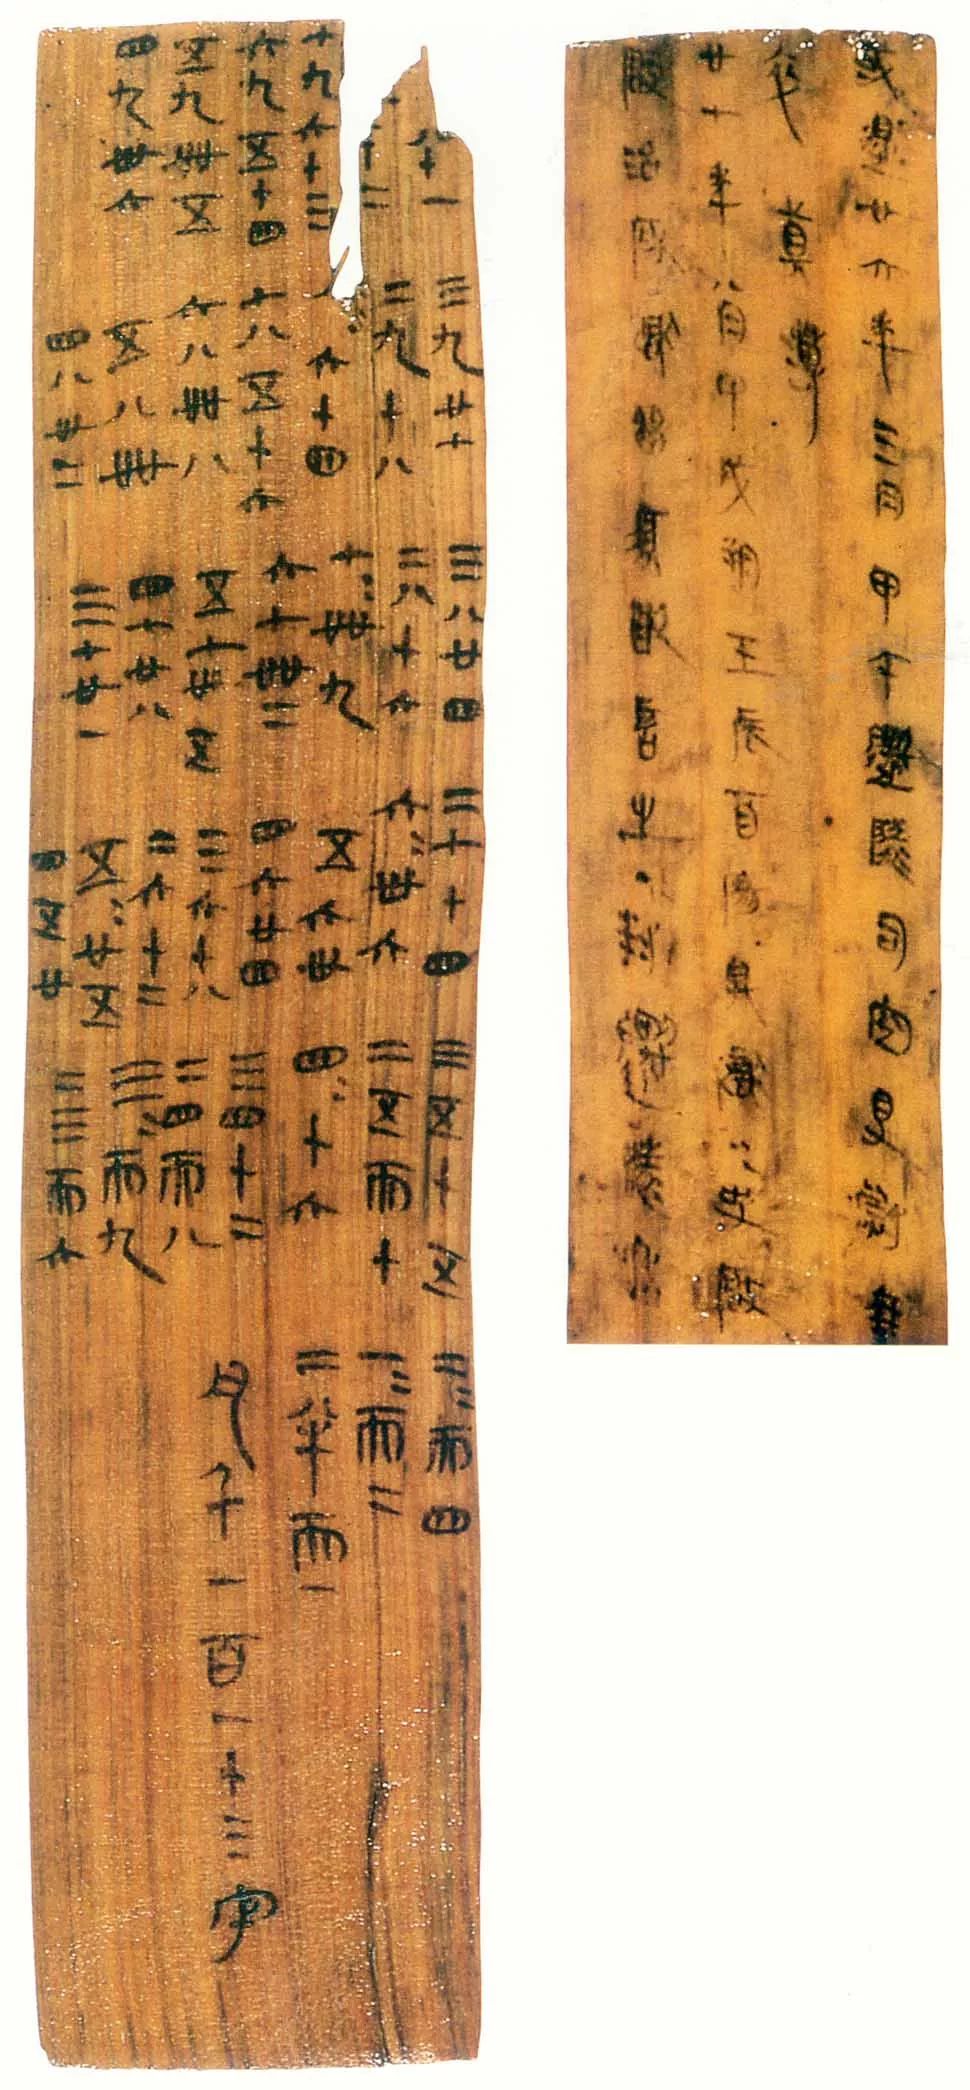 八十一
十二
七九六十三
六九五十四
五九卌五
四九卅六
三九廿七
二九十八
八〓六十四
七八五十六
六八卌八
五八卌
四八卅二
三八廿四
二八十六
七〓卌九
六七卌二
五七卅五
四七廿八
三七廿一
二七十四
六〓卅六
五六卅
四六廿四
三六十八
二六十二
五〓廿五
四五廿
三五十五
二五而十
四〓十六
三四十二
二四而八
三〓而九
二三而六
二〓而四
一〓而二
二半而一
凡千一百一十三字
或遝廿六年三月甲午遷陵司空得尉乘
卒真薄
廿七年八月甲戌朔壬辰酉陽具獄〓史啟
啟治所獄留須敢言之·封遷陵丞